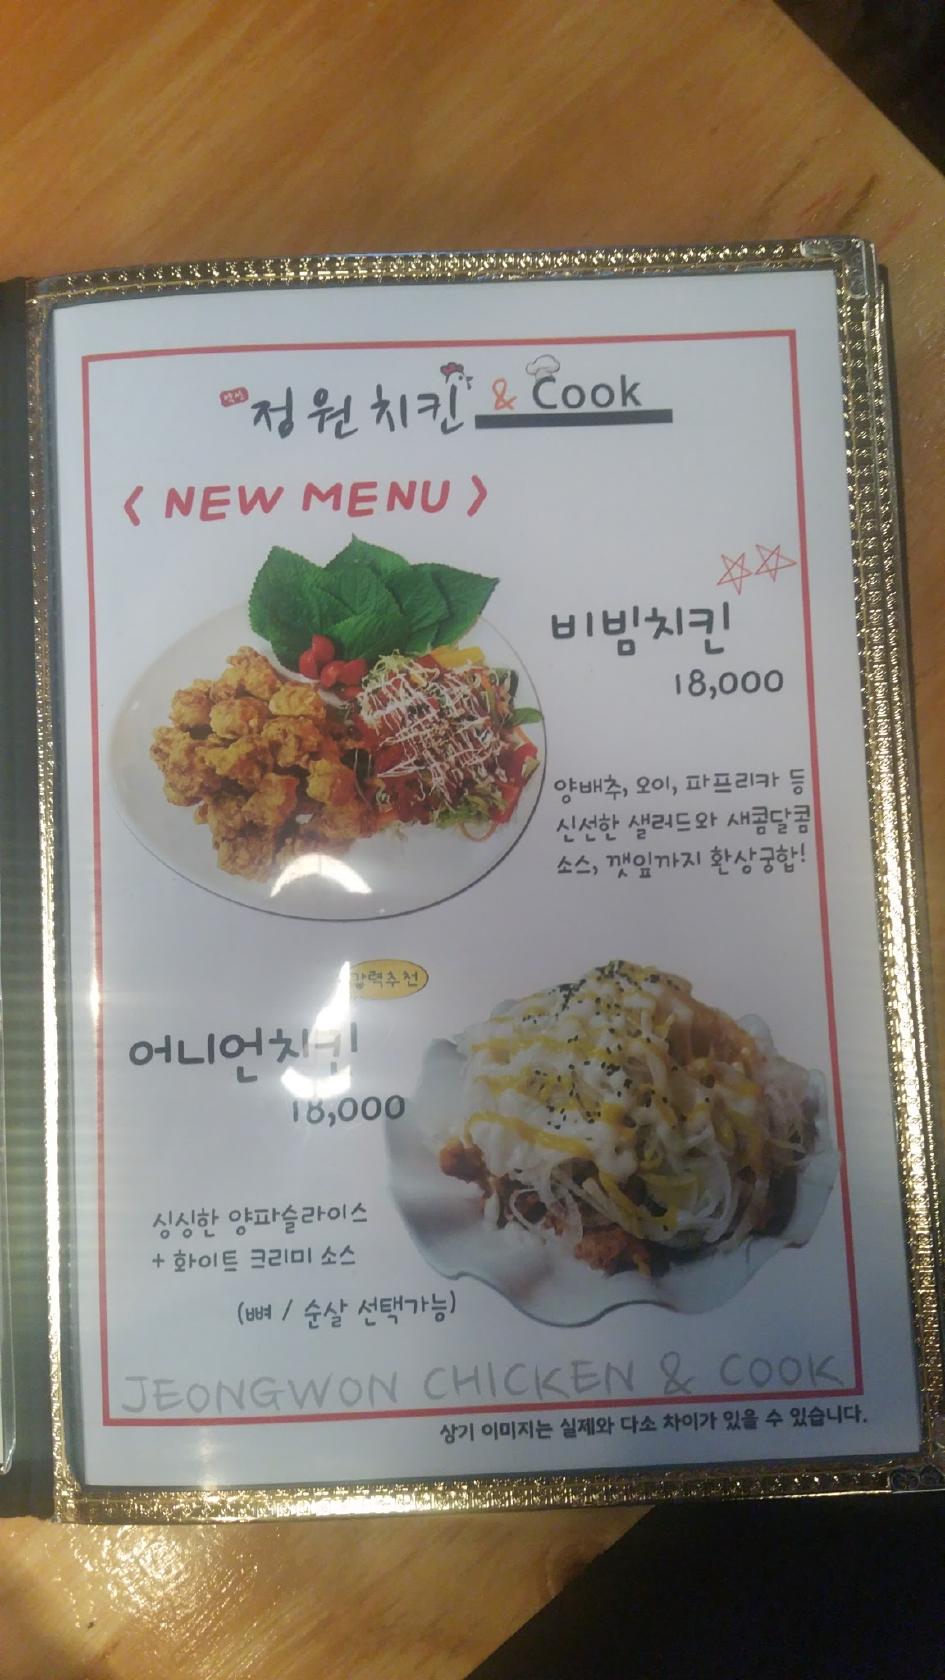 정원치킨 & Cook
< NEW MENU >
비빔치킨
18,000
양배추, 오이, 파프리카 등
신선한 샐러드와 새콤달콤
소스, 깻잎까지 환상궁합!
강력추천
어니언치킨
18,000
싱싱한 양파슬라이스
+ 화이트 크리미 소스
(뼈 / 순살 선택가능)
JEONGWON CHICKEN & COOK
상기 이미지는 실제와 다소 차이가 있을 수 있습니다.